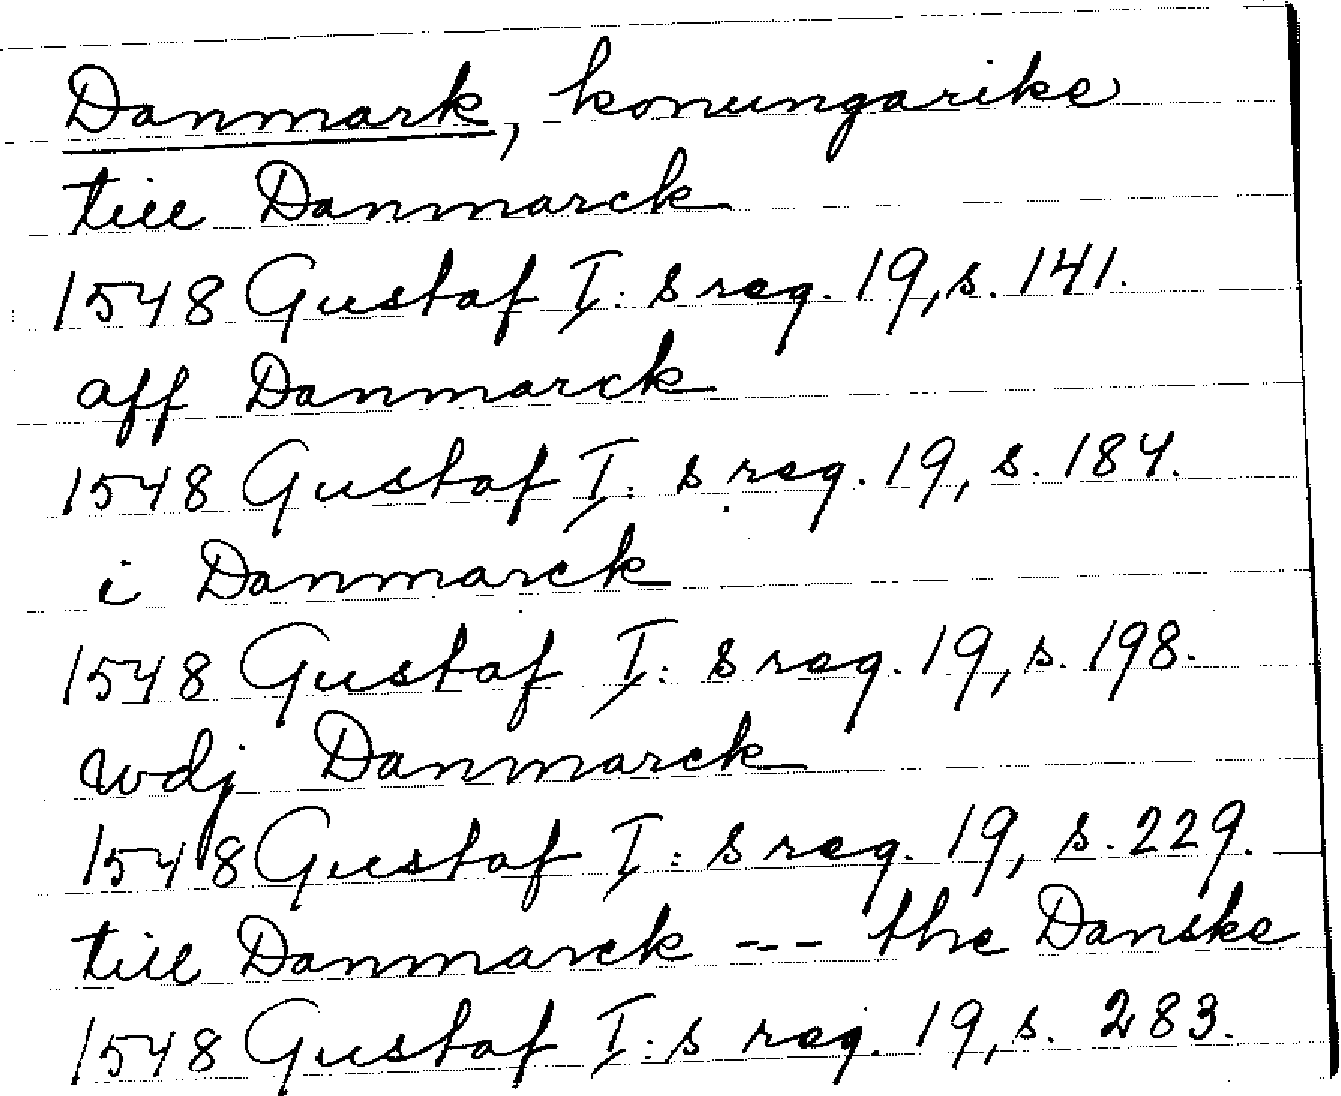 Danmark, konungarike
till Danmarck
1548 Gustaf I:s reg. 19, s. 141.
aff Danmarck
1548 Gustaf I:s reg. 19, s. 184.
i Danmarck
1548 Gustaf I:s reg. 19, s. 198.
wdj Danmarck
1548 Gustaf I:s reg. 19, s. 229.
till Danmarck --- the Danske
1548 Gustaf I:s reg. 19, s. 283.